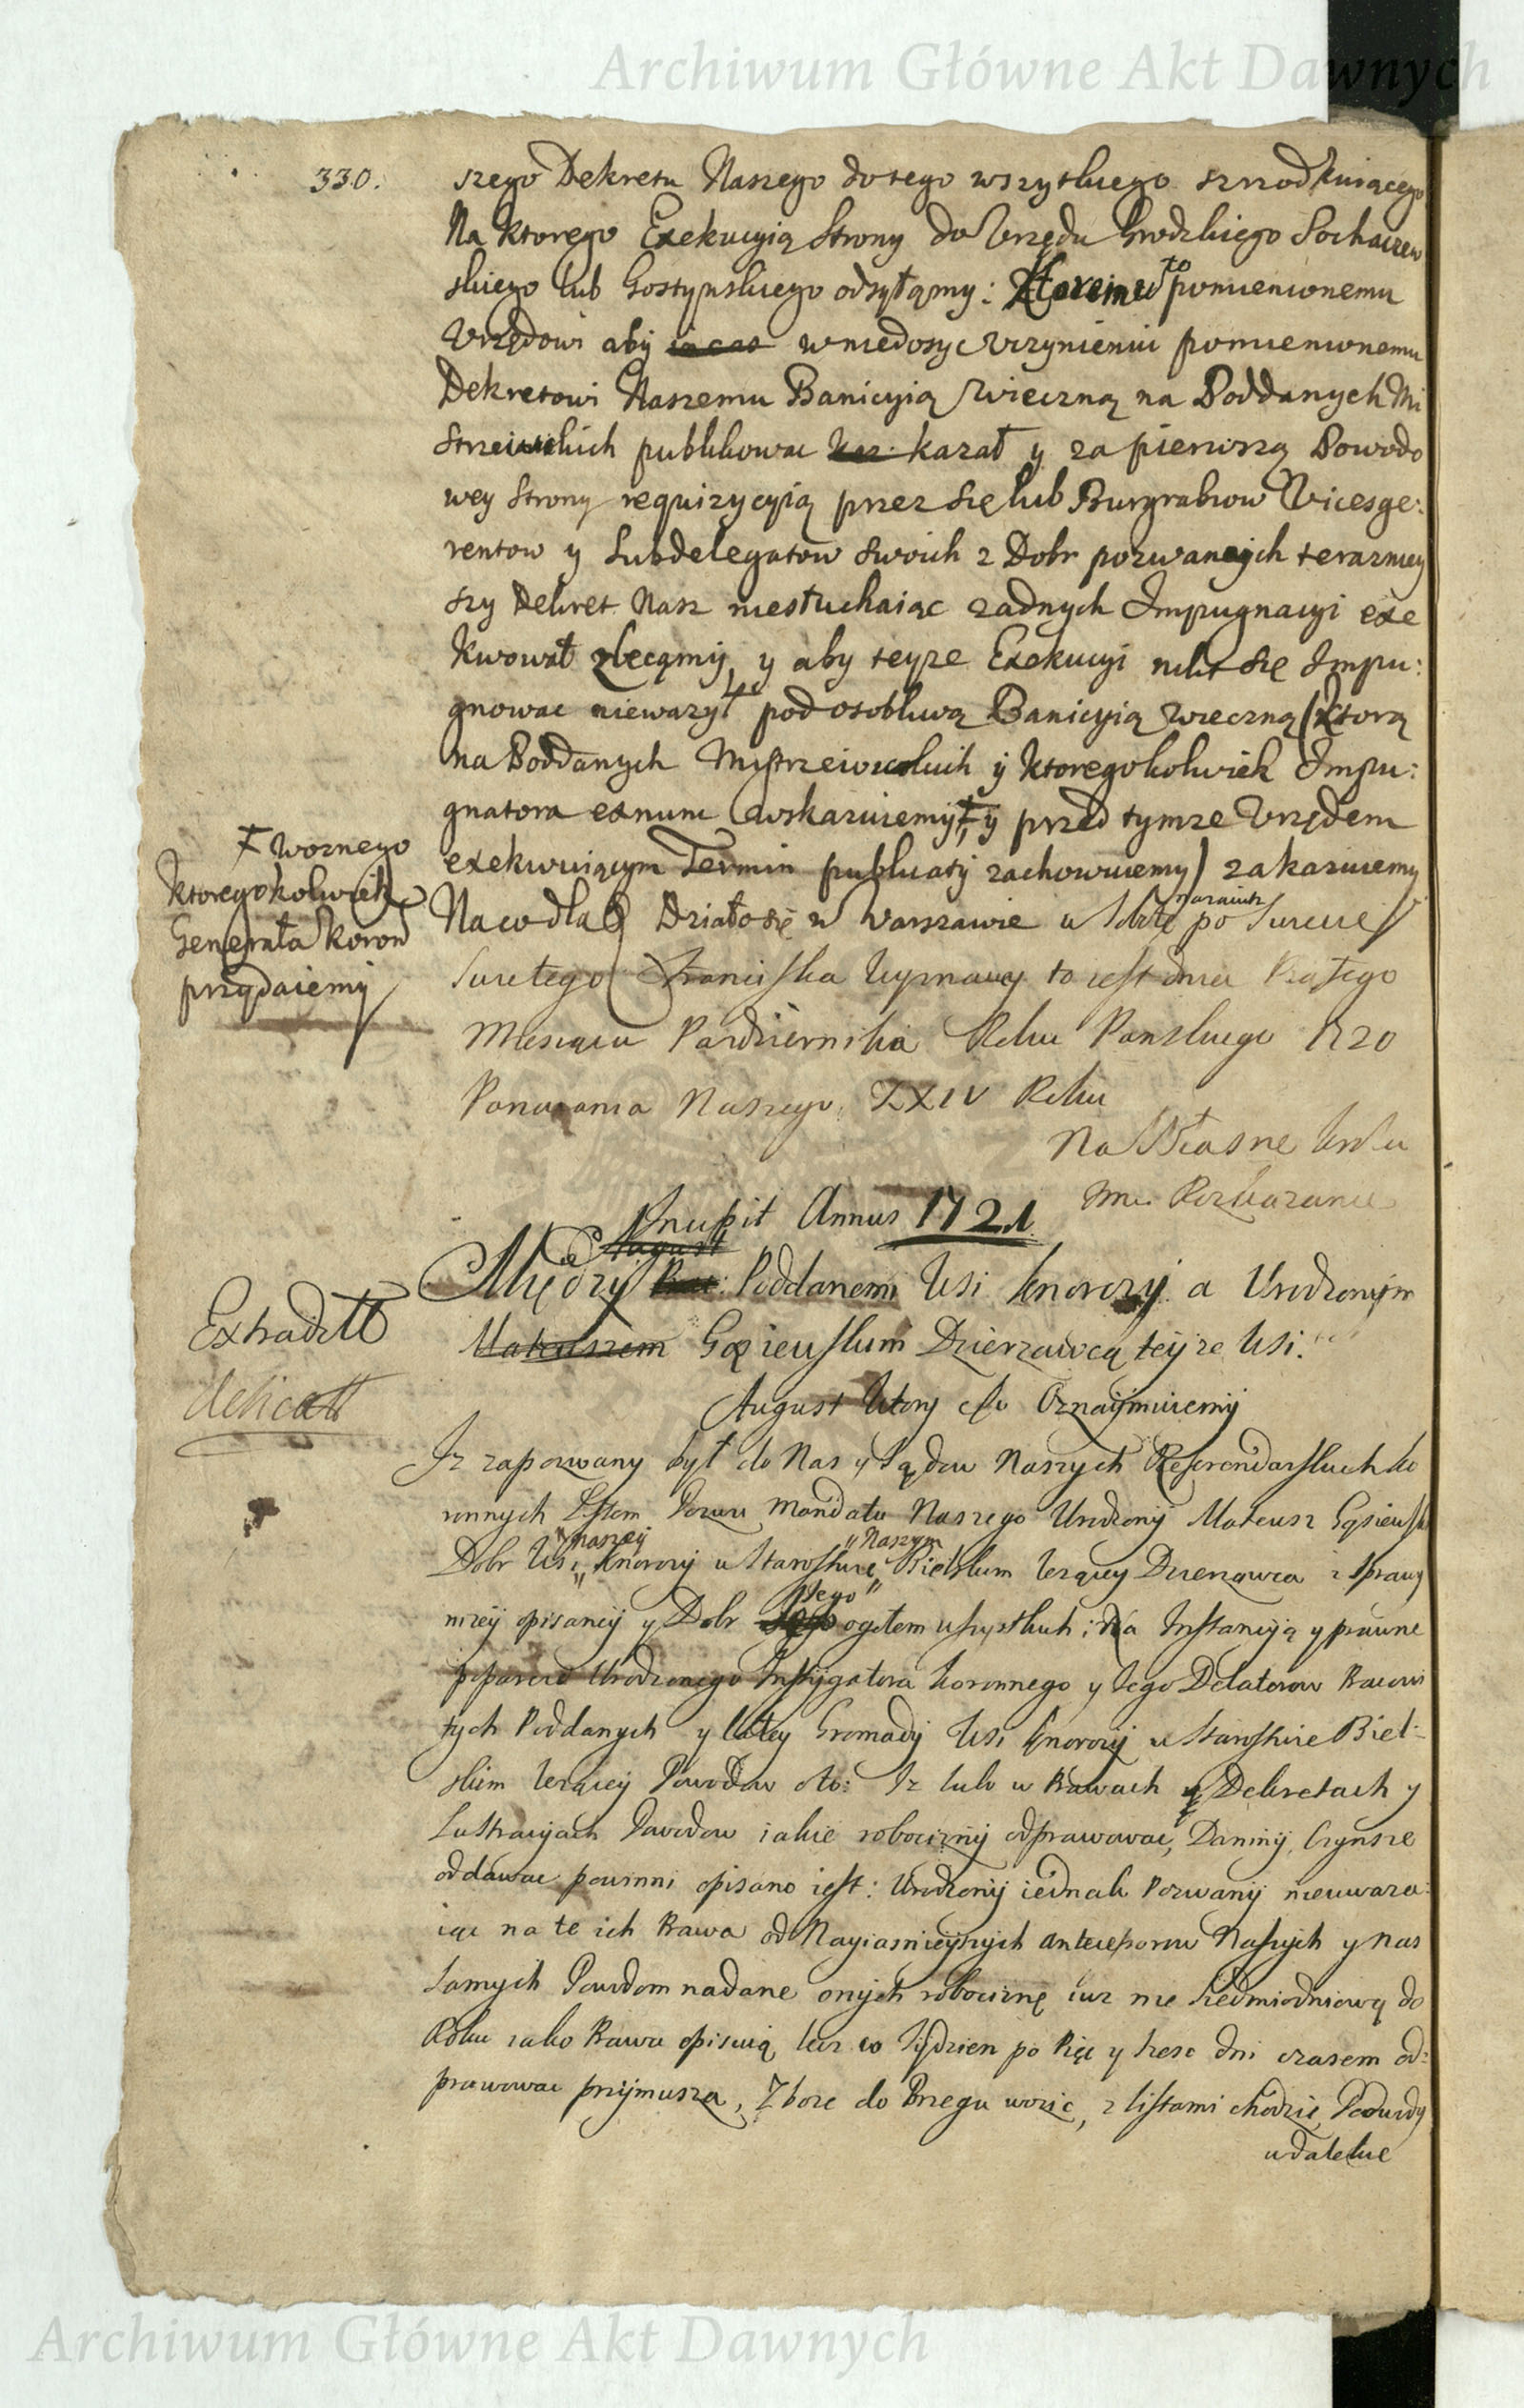 Archiwum Główne Akt Dawnych
330.
szego Dekretu Naszego do tego wszytkiego szrodkuiącego
Na ktorego Exekucyią Strony do Urzędu Grodzkiego Sochaczew
skiego lub Gostynskiego odsyłamy: Ktoremu to pomienionemu
Urzędowi aby wniedosyc Uczynieniu pomienionemu
Dekretowi Naszemu Banicyią Wieczną na Poddanych Mi
strzewskich publikowac kazał y za pierwszą Powodo
wey Strony requizycyią przez się lub Burgrabiow Vicesge:
rentow y Subdelegatow swoich z Dobr pozwanych terazniey
szy Dekret Nasz niesłuchaiąc zadnych Impugnacyi exe
kwował zlecamy, y aby teyze Exekucyi nikt się Impu:
gnowac niewazył pod osobliwą Banicyią wieczną (ktorą
na Poddanych Mistrzewickich y ktoregokolwiek Impu:
gnatora exnunc wskazuiemy, ł y przed tymze Urzędem
exekwuiącym Termin publicaty zachowuiemy) zakazuiemy
ł Woznego
ktoregokolwiek
Generała Koron
przydaiemy
Na co dla Działo się w Warszawie w Sobotę nazaiutrz po Swięcie
Swiętego Franciszka Wyznawcy to iest dnia Piątego
Miesiąca Pazdziernika Roku Panskiego 1720
Panowania Naszego XXIV Roku
Na Własne Krolu
Im. Rozkazanie
Incipit Annus 1721
August
Między Poddanemi Wsi Knorozy a Urodzonym
Mateuszem Gąsiewskim Dzierzawcą teyze Wsi.
Extradtt
dedicatt
August Wtory etc Oznaymuiemy
Iz zapozwany był do Nas y Sądow Naszych Referendarskich Ko
ronnych Listem Pozwu Mandatu Naszego Urodzony Mateusz Gąsiewski
Dobr Wsi naszey Knorozy w Starostwie Naszym Bielskim lezącey Dzierzawca z sprawy
nizey opisaney y Dobr Jego ogołem wszystkich: Na Instancyią y prawne
poparcie Urodzonego Instygatora koronnego y Jego Delatorow Pracowi
tych Poddanych y całey Gromady Wsi Knorozy w Starostwie Biel:
skim lezącey Powodow oto: Iz lubo w Prawach y Dekretach y
Lustracyiach Powodow iakie robocizny odprawowac, Daniny, Czynsze
oddawac powinni opisano iest: Urodzony iednak Pozwany nieuwaza:
iąc na te ich Prawa od Nayiasnieyszych Antecesorow Naszych y nas
samych Powodom nadane onych robociznę iuz nie siedmiodniową do
Roku iako Prawa opisuią lecz co tydzien po Pięc y szesc dni czasem od:
prawowac przymusza, Zboze do Brzegu wozic, z listami chodzic, Podwody
wdalekie
Archiwum Główne Akt Dawnych